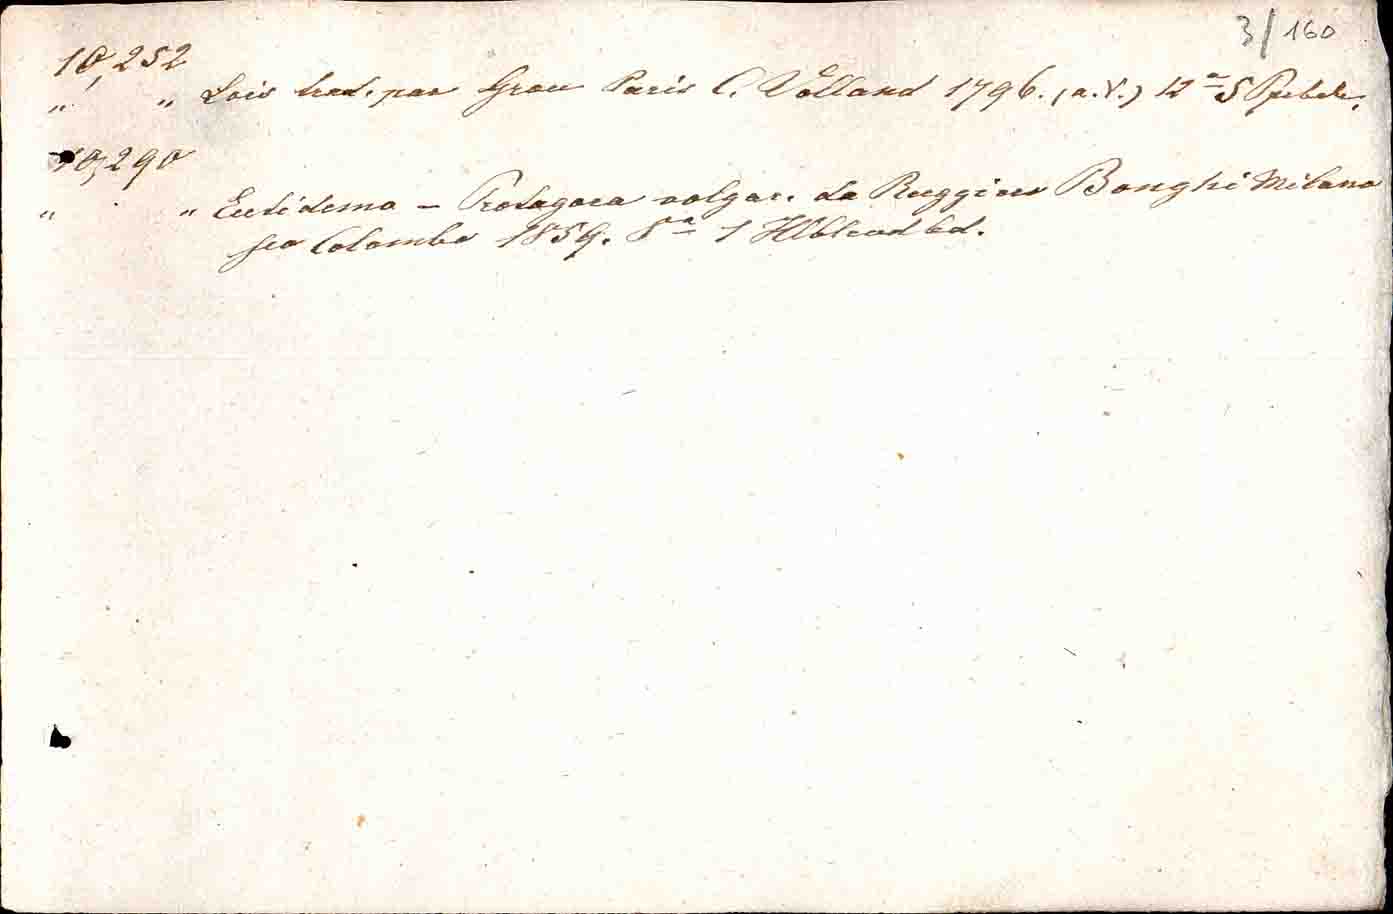 3/160
10,252
" " Lois trad. par Grou Paris C. Volland 1796. (a.V.) 12° 5 Ppbde.
10,290
" " Eutidemo – Protagora volgar. da Ruggiero Bonghi Milano
Fco Colombo 1859. 8° 1 Hlblendbd.